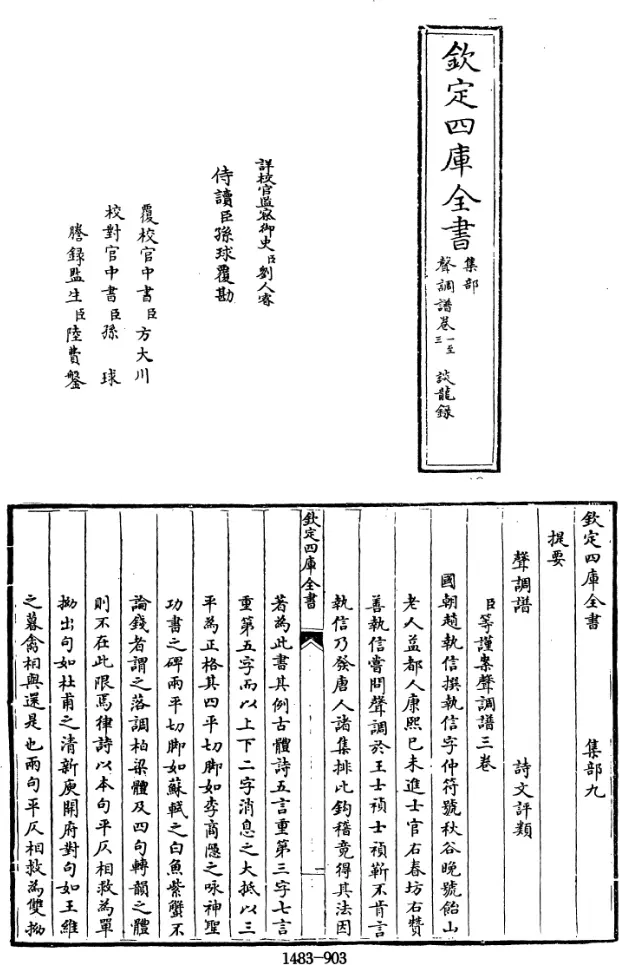 欽定四庫全書
集部
聲調譜卷一至三
談龍錄
詳校官監察御史臣劉人睿
侍讀臣孫球覆勘
覆校官中書臣方大川
校對官中書臣孫球
謄錄監生臣陸費鏊
欽定四庫全書 集部九
提要
聲調譜 詩文評類
臣等謹案聲調譜三卷
國朝趙執信撰執信字仲符號秋谷晚號飴山
老人益都人康熙己未進士官右春坊右贊
善執信嘗問聲調於王士禎士禎靳不肯言
執信乃發唐人諸集排比鉤稽竟得其法因
欽定四庫全書
一
著為此書其例古體詩五言重第三字七言
重第五字而以上下二字消息之大抵以三
平為正格其四平切脚如李商隱之咏神聖
功書之碑兩平切脚如蘇軾之白魚紫蟹不
論錢者謂之落調柏梁體及四句轉韻之體
則不在此限焉律詩以本句平仄相救為單
拗出句如杜甫之清新庾開府對句如王維
之暮禽相與還是也兩句平仄相救為雙拗
1483-903